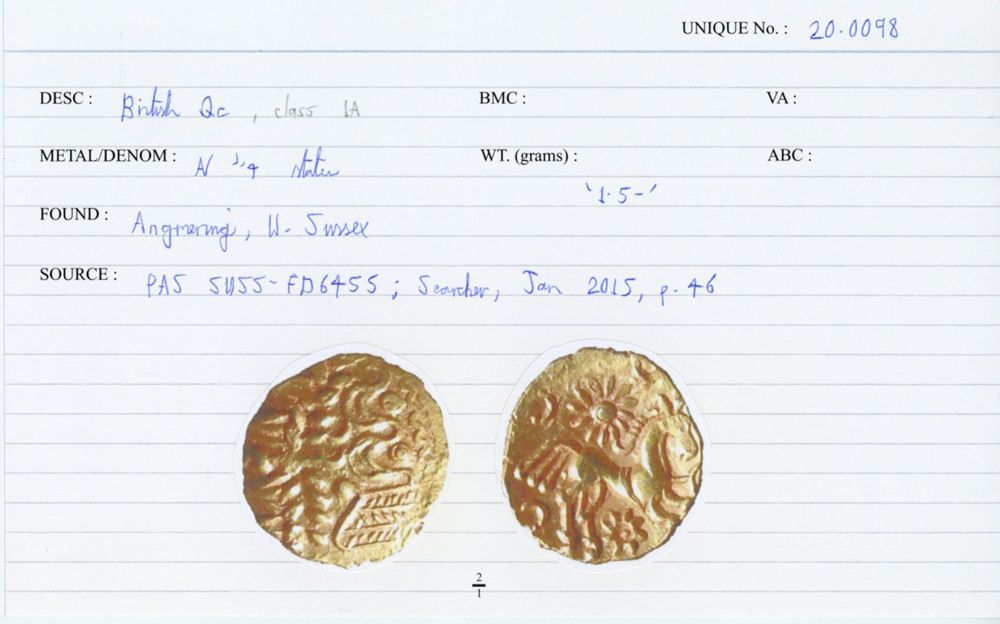 UNIQUE No. : 20.0098
DESC : British Qc, class 1A BMC : VA :
METAL/DENOM : AV 1/4 stater WT. (grams) : ABC :
'1.5-'
FOUND : Angmering, W. Sussex
SOURCE : PAS SUSS-FD6455 ; Searcher, Jan 2015, p. 46
2
1